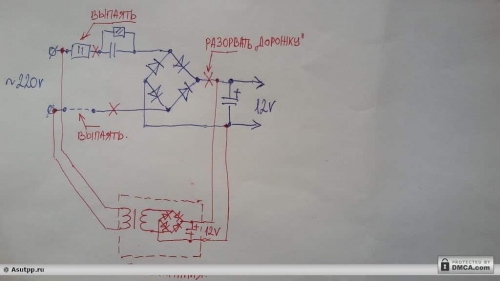 ВЫПАЯТЬ
РАЗОРВАТЬ „ДОРОЖКУ"
~220v
+
12v
ВЫПАЯТЬ.
+
12v
@ Asutpp.ru
PROTECTED BY
DMCA.com